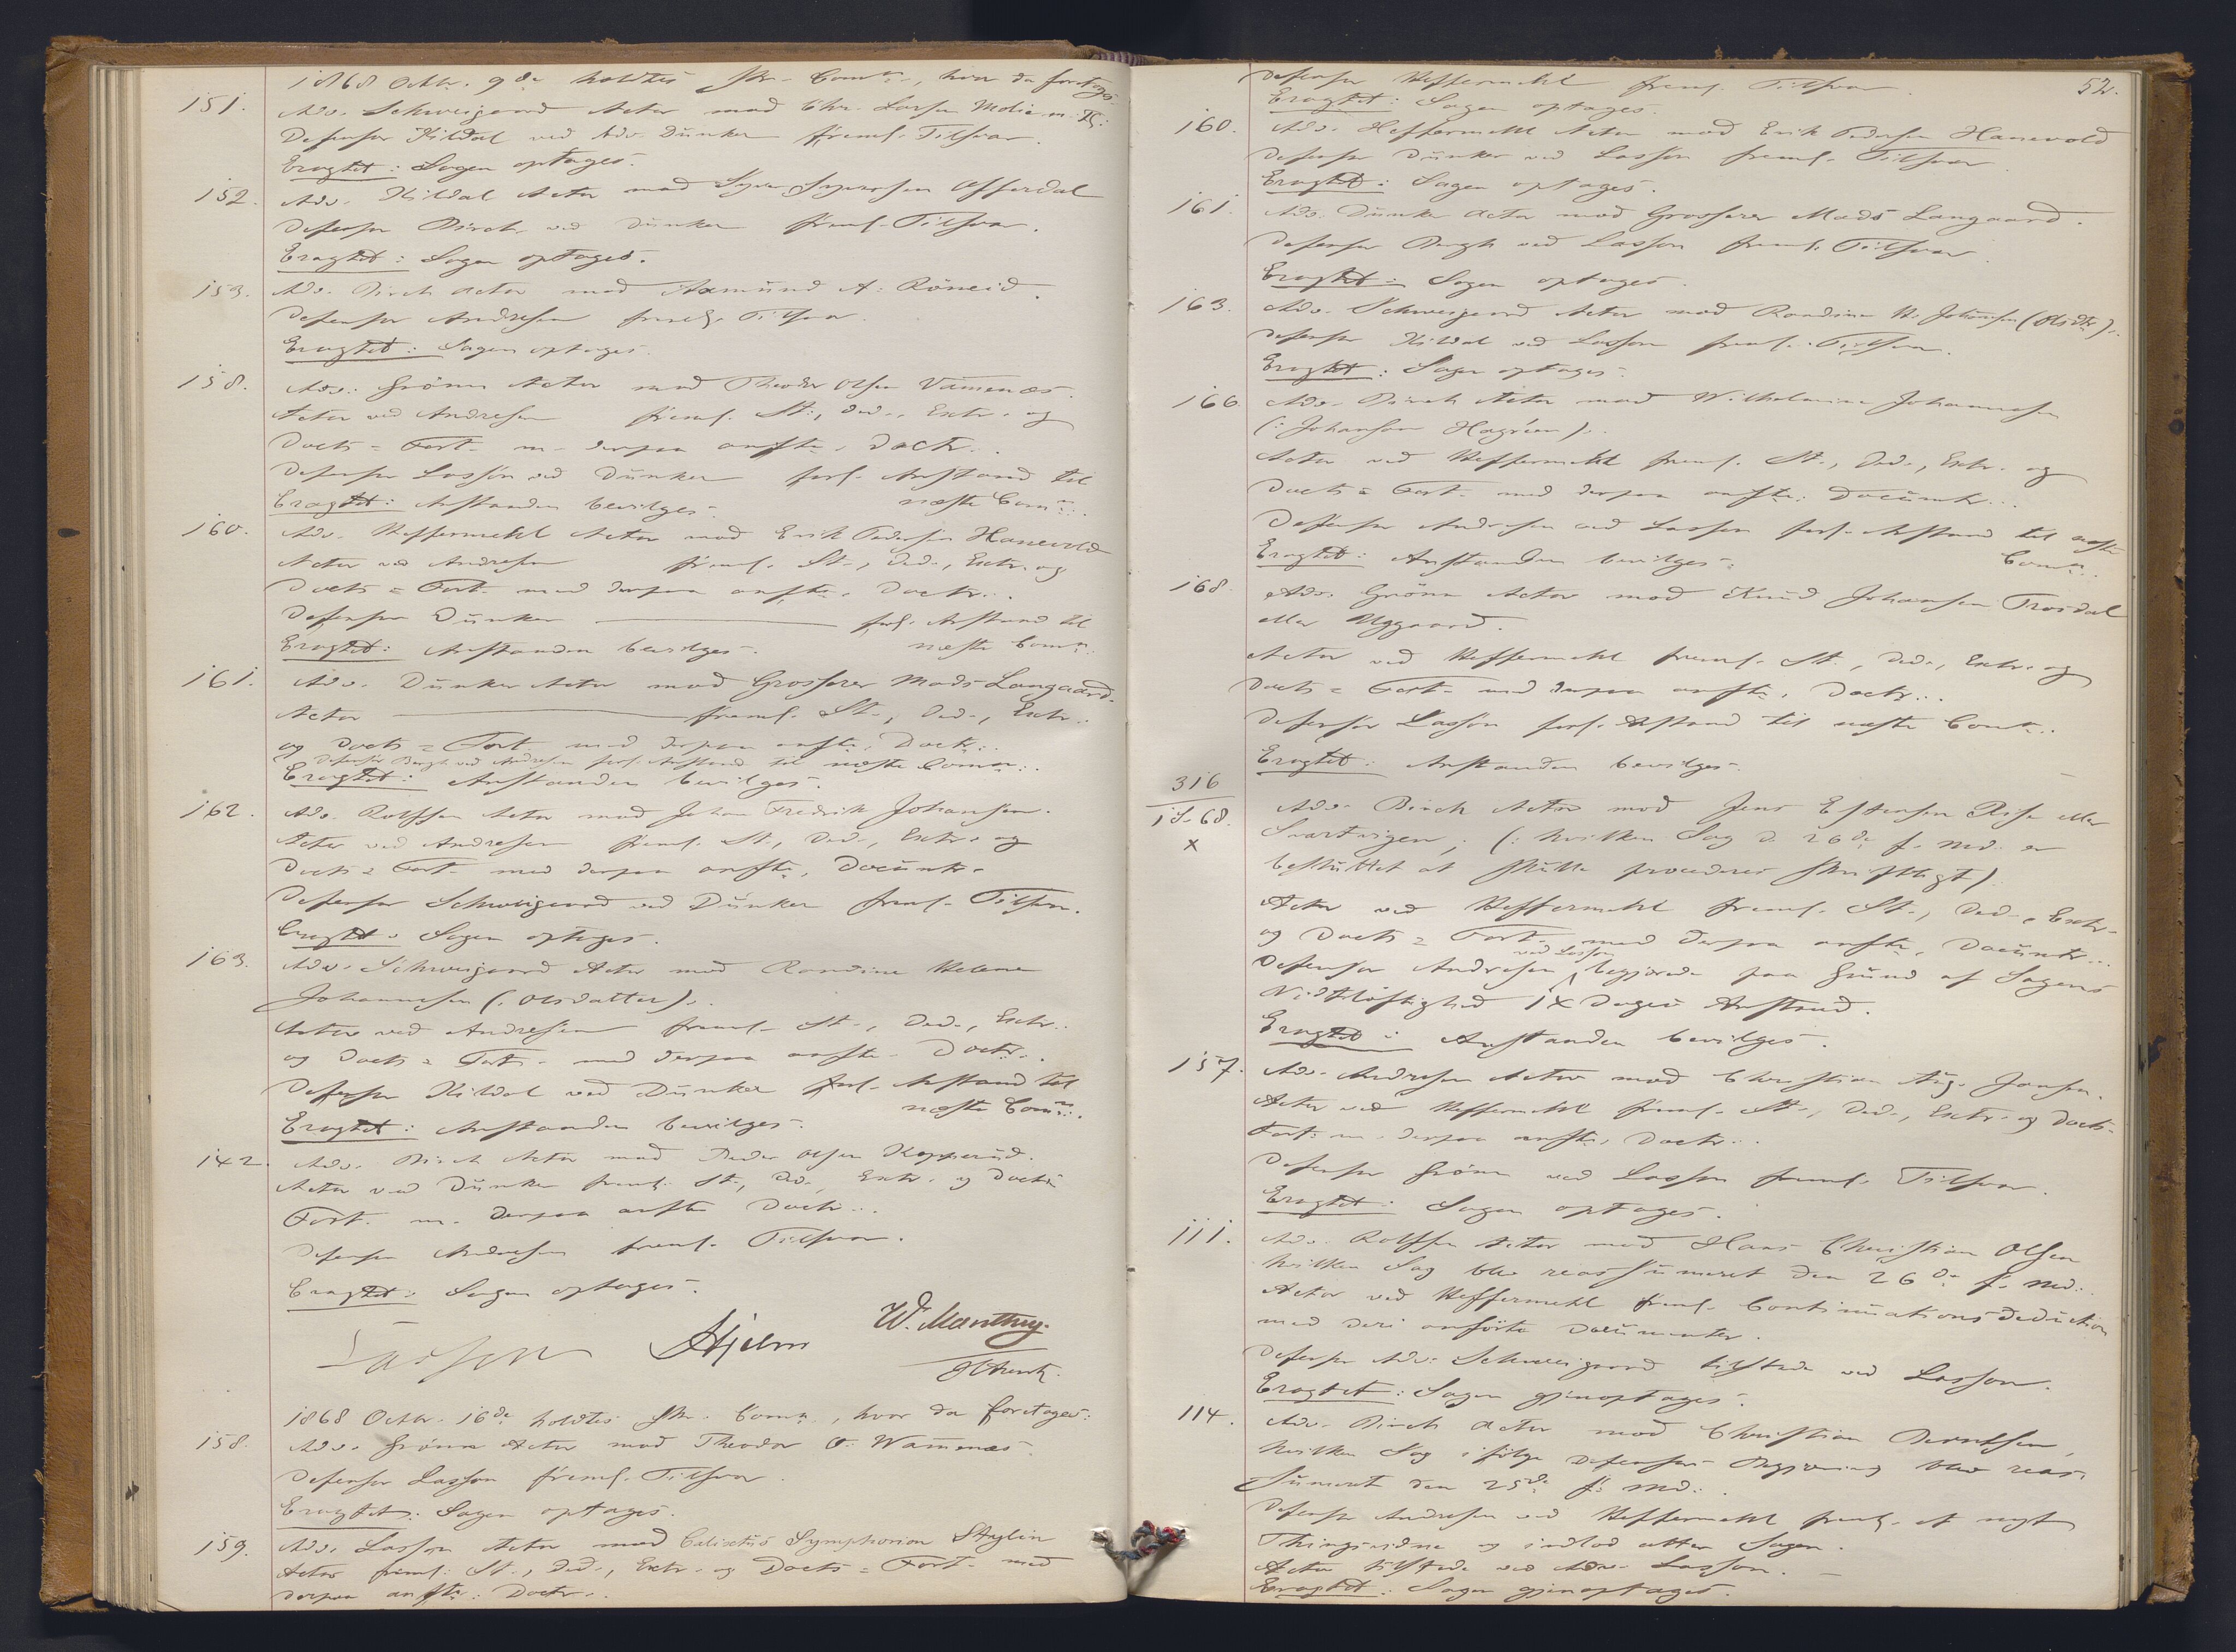 1868 Octbr. 9de holdtes skr. Comn., hvor da foretoges
151. Adv. Schweigaard Actor mod Chr. Larsen Molie m. Fl:
Defensor Kildal ved Adv. Dunker freml. Tilsvar.
Eragtet: Sagen optages.
152. Adv. Kildal Actor mod Syver Syversen Offerdal
Defensor Birch ved Dunker freml. Tilsvar.
Eragtet: Sagen optages.
153. Adv. Birch Actor mod Asmund A. Röneid.
Defensor Andresen freml. Tilsvar.
Eragtet: Sagen optages.
158. Adv. Grönn Actor mod Theodor Olsen Vamnæs.
Actor ved Andresen freml. St., Ded., Extr. og
Docts = Fort. m. derpaa anfte. Doctr.
Defensor Lasson ved Dunker forl. Anstand til
Eragtet: Anstanden bevilges. næste Comn.
160. Adv. Heffermehl Actor mod Erik Pedersen Hanevold
Actor ved Andresen freml. St., Ded., Extr. og
Docts = Fort. med derpaa anfte. Doctr.
Defensor Dunker forl. Anstand til
Eragtet: Anstanden bevilges. næste Comn.
161. Adv. Dunker Actor mod Grosserer Mads Langaard.
Actor freml. St., Ded., Extr.
og Docts = Fort. med derpaa anfte. Doctr.
Defensor Bergh ved Andresen forl. Anstand til næste Comn.
Eragtet: Anstanden bevilges.
162. Adv. Rolfsen Actor mod Johan Fredrik Johansen.
Actor ved Andresen freml. St., Ded., Extr. og
Docts = Fort. med derpaa anfte. Documtr.
Defensor Schweigaard ved Dunker freml. Tilsvar.
Eragtet: Sagen optages.
163. Adv. Schweigaard Actor mod Randine Helene
Johannesen (: Olsdatter).
Actor ved Andresen freml. St., Ded., Extr.
og Docts = Fort. med derpaa anfte. Doctr.
Defensor Kildal ved Dunker forl. Anstand til
Eragtet: Anstanden bevilges. næste Comn.
142. Adv. Birch Actor mod Peder Olsen Kopperud.
Actor ved Dunker freml. St., Ded., Extr. og Docts =
Fort. m. derpaa anfte Doctr.
Defensor Andresen freml. Tilsvar.
Eragtet: Sagen optages.
Lasson Hjelm W. Manthey
1868 Octbr. 16de holdtes skr. Comn., hvor da foretages:
158. Adv. Grönn Actor mod Theodor O. Wamnæs.
Defensor Lasson freml. Tilsvar.
Eragtet: Sagen optages.
159. Adv. Lasson Actor mod Calixtus Symphorian Stylin
Actor freml. St., Ded., Extr. og Docts = Fort. med
derpaa anfte. Doctr.
52.
Defensor Heffermehl freml. Tilsvar.
Eragtet: Sagen optages.
160. Adv. Heffermehl Actor mod Erik Pedersen Hanevold
Defensor Dunker ved Lasson freml. Tilsvar
Eragtet: Sagen optages.
161. Adv. Dunker Actor mod Grosserer Mads Langaard.
Defensor Bergh ved Lasson freml. Tilsvar.
Eragtet: Sagen optages.
163. Adv. Schweigaard Actor mod Randine H. Johannesen (Olsdtr).
Defensor Kildal ved Lasson freml. Tilsvar.
Eragtet: Sagen optages.
166. Adv. Birch Actor mod Wilhelmine Johannesen
(: Johanson Hagréen).
Actor ved Heffermehl freml. St., Ded., Extr. og
Docts = Fort. med derpaa anfte. Documtr.
Defensor Andresen ved Lasson forl. Anstand til næste
Eragtet: Anstanden bevilges. Comn.
168. Adv. Grönn Actor mod Knud Johansen Trosdal
eller Uggaard.
Actor ved Heffermehl freml. St., Ded., Extr. og
Docts = Fort. med derpaa anfte. Doctr.
Defensor Lasson forl. Anstand til næste Comn.
Eragtet: Anstanden bevilges.
316
1S. 68. Adv. Birch Actor mod Jens Estensen Risen eller
x Svartvigen, (: hvilken Sag d. 26de f. Md. er
besluttet at skulle procederes skriftligt).
Actor ved Heffermehl freml. St., Ded., Extr.
og Docts = Fort. med derpaa anfte. Documtr.
ved Lasson
Defensor Andresen begjærede paa Grund af Sagens
Vidtløftighed 14 Dages Anstand.
Eragtet: Anstanden bevilges.
157. Adv. Andresen Actor mod Christian Aug. Jansen.
Actor ved Heffermehl freml. St., Ded., Extr. og Docts =
Fort. m. derpaa anfte. Doctr.
Defensor Grönn ved Lasson freml. Tilsvar.
Eragtet: Sagen optages.
111. Adv. Rolfsen Actor mod Hans Christian Olsen
hvilken Sag blev reassumeret den 26de f. Md.
Actor ved Heffermehl freml. Continuations Deduction
med deri anførte Documenter.
Defensor Adv. Schweigaard tilstede ved Lasson.
Eragtet: Sagen gjenoptages.
114. Adv. Birch Actor mod Christian Berntsen,
hvilken Sag ifölge Defensors Begjæring blev reas-
sumeret den 25de f. Md.
Defensor Andresen ved Heffermehl freml. et nyt
Thingsvidne og indlod atter Sagen.
Actor tilstede ved Adv. Lasson.
Eragtet: Sagen gjenoptages.